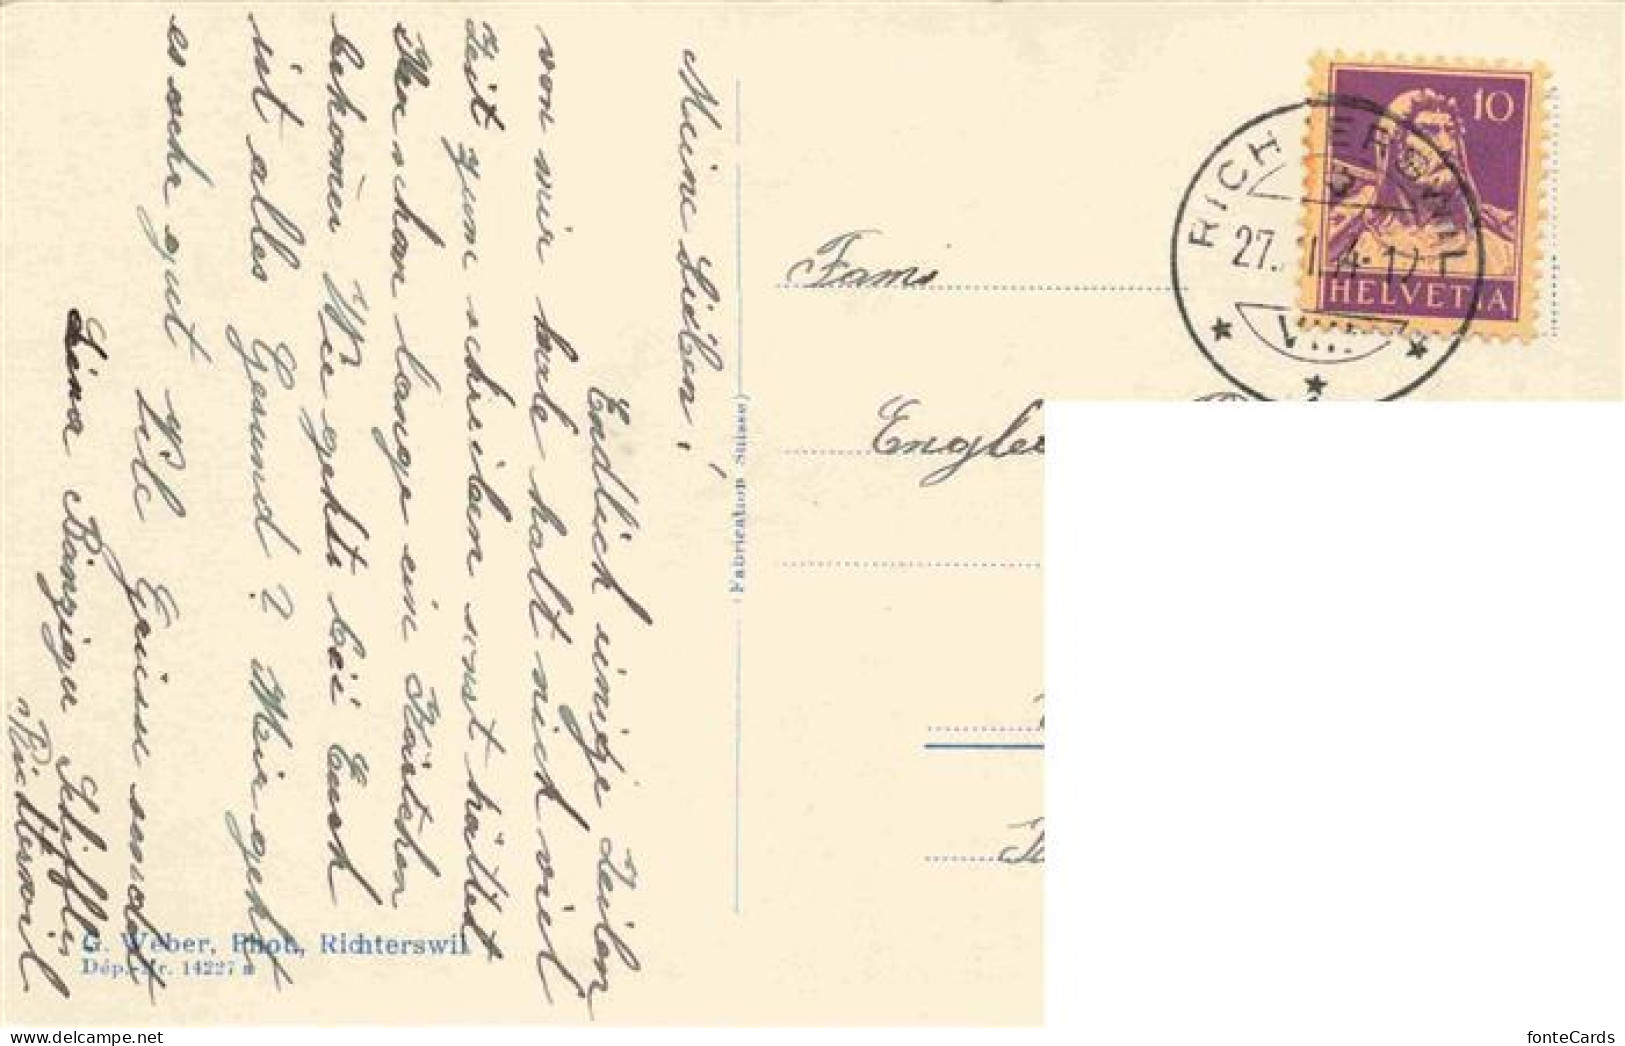 Meine Lieben!
Endlich einige Zeilen
von mir habe halt nich viel
Zeit zum schreiben sonst hättet
Ihr schon lange ein Kärtchen
bekomen Wie gehts bei Euch
ist alles Gesund? Mir geht
es sehr gut Vile Grüsse sendet
Lina Bänziger
Richterswil
(Fabrication Suisse)
G. Weber, Phot., Richterswil
Dép.-Nr. 14227
Fami
Engle
10
HELVETIA
RICHTERSWIL
27.
VIII
fonteCards